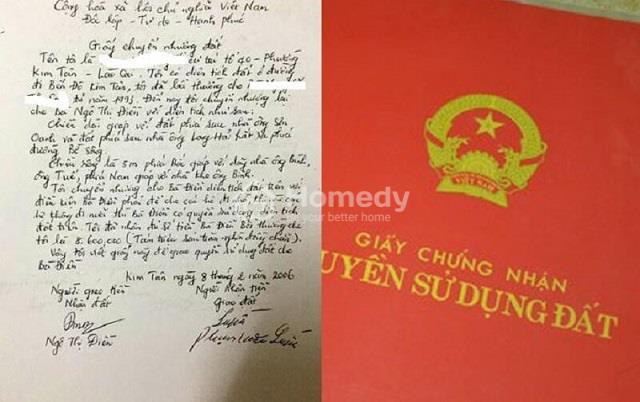 Cộng hoà xã hội chủ nghĩa Việt Nam
Độc lập - Tự do - Hạnh phúc
Giấy chuyển nhượng đất
Tên tôi là cư trú tổ 40 - Phường
Kim Tân - Lào Cai. Tôi có diện tích đất ở đường
đi Bến Đò Kim Tân, tôi đã bồi thường cho
từ năm 1993. Đến nay tôi chuyển nhượng lại
cho bà Ngô Thị Điền với diện tích như sau:
Chiều dài giáp với đất phía sau nhà ông Sến
Oanh và đất phía sau nhà ông Long Hoà
đường Bê tông.
Chiều rộng là 5m phía Bắc giáp với dãy nhà ông Bình,
ông Tuế, phía Nam giáp với nhà kho ông Bình.
Tôi chuyển nhượng cho Bà Điền diện tích đất trên với
điều kiện Bà Điền phải để cho cái
bà Điền có quyền sử dụng diện tích
đất trên. Tôi đã nhận đủ số tiền Bà Điền Bồi thường cho
tôi là 8.600.000 (Tám triệu sáu trăm nghìn đồng chẵn).
Vậy tôi viết giấy này để giao quyền sử dụng đất cho
Bà Điền
Kim Tân ngày 8 tháng 2 năm 2006
Người giao tiền Người nhận tiền
Nhận đất Giao đất
Ngô Thị Điền
Homedy
your better home
VIỆT NAM
GIẤY CHỨNG NHẬN
UYỀN SỬ DỤNG ĐẤT